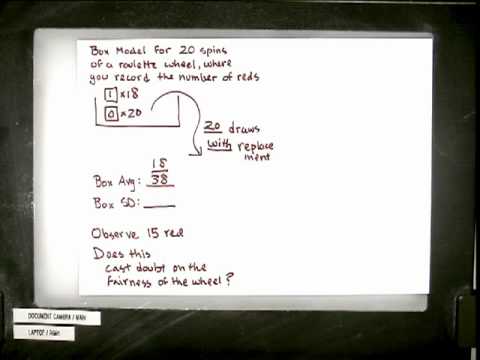 Box Model for 20 spins
of a roulette wheel, where
you record the number of reds
1 x 18
0 x 20
20 draws
with replace
ment
Box Avg: 18/38
Box SD: ____
Observe 15 red
Does this
cast doubt on the
fairness of the wheel?
DOCUMENT CAMERA / MAIN
LAPTOP / RGH1